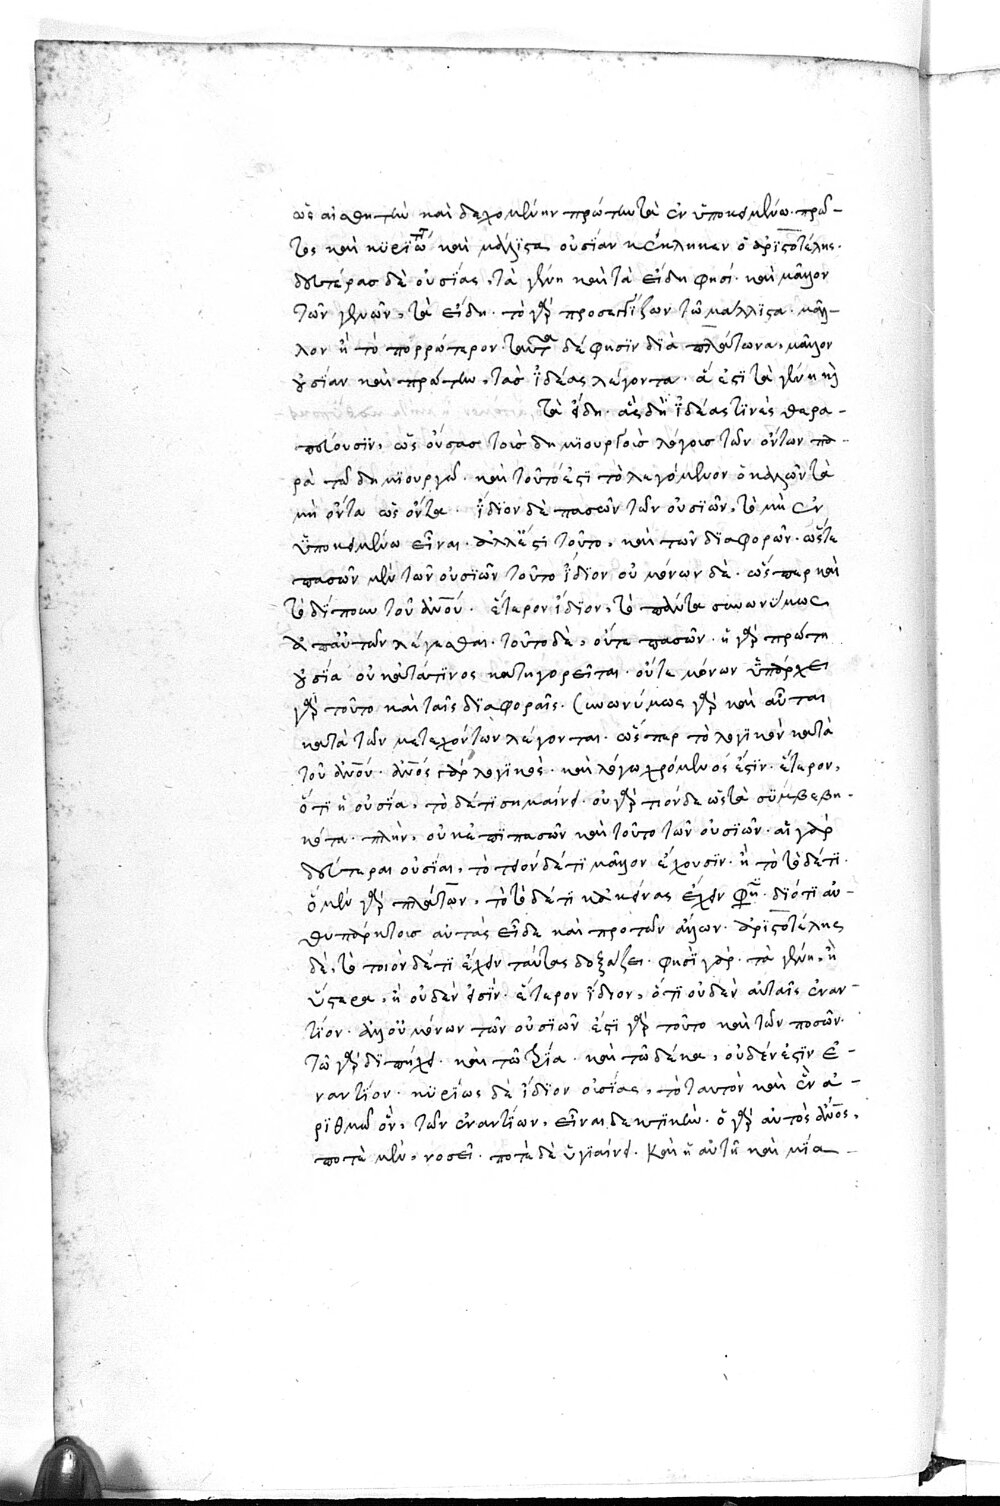 ὡς αἰσθητὴν καὶ δεχομένην πρώτην τὰ ἐν ὑποκειμένω· πρώ-
τως καὶ κυρίως καὶ μάλιστα οὐσίαν κέκληκεν ὁ ἀριστοτέλης·
δευτέρας δὲ οὐσίας, τὰ γένη καὶ τὰ εἴδη φησί· καὶ μᾶλλον
τῶν γενῶν, τὰ εἴδη· τὸ γὰρ προσεγγίζον τῶ μάλλιστα· μᾶλ-
λον ἢ τὸ πορρώτερον· ταῦτα δέ φησϊν διὰ πλάτωνα, μᾶλλον
οὐσίαν καὶ πρώτην, τὰς ἰδέας λέγοντα· ἅ ἐστι τὰ γένη καὶ
τὰ εἴδη· ἃς δὴ ἰδέας τινὲς θερα-
πεύουσϊν, ὡς οὔσας τοῖς δημϊουργοῖς λόγοις τῶν ὄντων πα-
ρὰ τῶ δημϊουργῶ· καὶ τοῦτό ἐστι τὸ λεγόμενον ὁ καλῶν τὰ
μὴ ὄντα ὡς ὄντα· ἴδϊον δὲ πασῶν τῶν οὐσϊῶν, τὸ μὴ ἐν
ὑποκειμένω εἶναι· ἀλλ' ἔστι τοῦτο, καὶ τῶν διαφορῶν· ὥστε
πασῶν μὲν τῶν οὐσϊῶν τοῦτο ἴδϊον οὐ μόνων δέ· ὥσπερ καὶ
τὸ δίπουν τοῦ ἀνου· ἕτερον ἴδϊον, τὸ πάντα συνωνύμως
ἀπ' αὐτῶν λέγεσθαι· τοῦτο δὲ, οὔτε πασῶν· ἡ γὰρ πρώτη
οὐσία οὐ κατά τϊνος κατηγορεῖται· οὔτε μόνων ὑπάρχει
γὰρ τοῦτο καὶ ταῖς διαφοραῖς· συνωνύμως γὰρ καὶ αὗται
κατὰ τῶν μετεχόντων λέγονται· ὥσπερ τὸ λογϊκὸν κατὰ
τοῦ ἀνου· ἀνος γὰρ λογϊκὸς· καὶ λόγω χρώμενός ἐστϊν· ἕτερον,
ὅτι ἡ οὐσία, τὸ δέ τι σημαίνει· οὐ γὰρ τιόνδε ὡς τὰ συμβεβη-
κότα· πλὴν, οὐκ ἐπὶ πασῶν καὶ τοῦτο τῶν οὐσϊῶν· αἱ γὰρ
δεύτεραι οὐσίαι, τὸ τοιόνδέ τι μᾶλλον ἔχουσϊν· ἢ τὸ τόδέ τι·
ὁ μὲν γὰρ πλάτων, τὸ τόδέ τι κἀκείνας ἔχειν φησὶ· διότι αὐ-
θυπάρκτοις αὐτὰς εἶδε καὶ πρὸ τῶν ἄλλων· ἀριστοτέλης
δὲ, τὸ τοιόνδέ τι ἔχειν ταύτας δοξάζει· φησὶ γὰρ· τὰ γένη, ἢ
ὕστερα, ἢ οὐδέν εἰσϊν· ἕτερον ἴδϊον, ὅτι οὐδὲν αὐταῖς ἐναν-
τίον· ἀλλ' οὐ μόνων τῶν οὐσϊῶν ἐστϊ γὰρ τοῦτο καὶ τῶν ποσῶν·
τῶ γὰρ διπήχει· καὶ τῶ τρία· καὶ τῶ δέκα, οὐδέν ἐστϊν ἐ-
ναντίον· κυρίως δὲ ἴδϊον οὐσίας, τὸ ταυτὸν καὶ ἓν ἀ-
ρϊθμῶ ὂν, τῶν ἐναντίων, εἶναι δεκτϊκὴν· ὁ γὰρ αὐτὸς ἀνος,
ποτὲ μὲν, νοσεῖ· ποτὲ δὲ ὑγϊαίνει· καὶ ἡ αὐτὴ καὶ μϊα